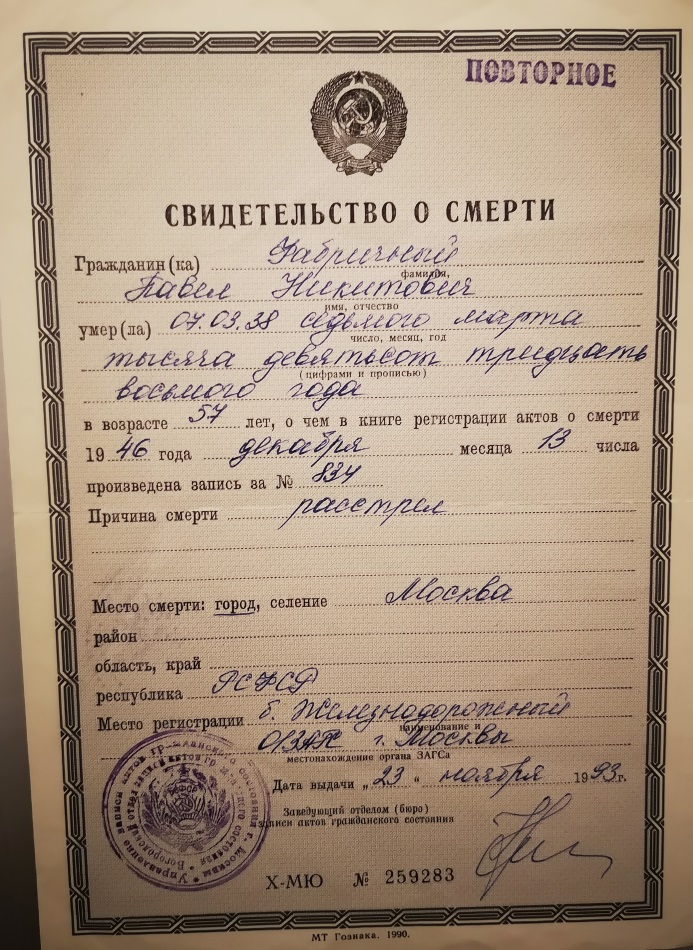 ПОВТОРНОЕ
СВИДЕТЕЛЬСТВО О СМЕРТИ
Гражданин (ка) Фабричный
фамилия,
Павел Никитович
имя, отчество
умер (ла) 07.03.38 седьмого марта
число, месяц, год
тысяча девятьсот тридцать
(цифрами и прописью)
восьмого года
в возрасте 57 лет, о чем в книге регистрации актов о смерти
19 46 года декабря месяца 13 числа
произведена запись за № 834
Причина смерти расстрел
Место смерти: город, селение Москва
район
область, край
республика РСФСР
Место регистрации б. Железнодорожный
наименование и
ОЗАГС г. Москвы
местонахождение органа ЗАГСа
Дата выдачи „23“ ноября 1993г.
Заведующий отделом (бюро)
записи актов гражданского состояния
Управление записи актов гражданского состояния г. Москвы
X-МЮ № 259283
МТ Гознака. 1990.